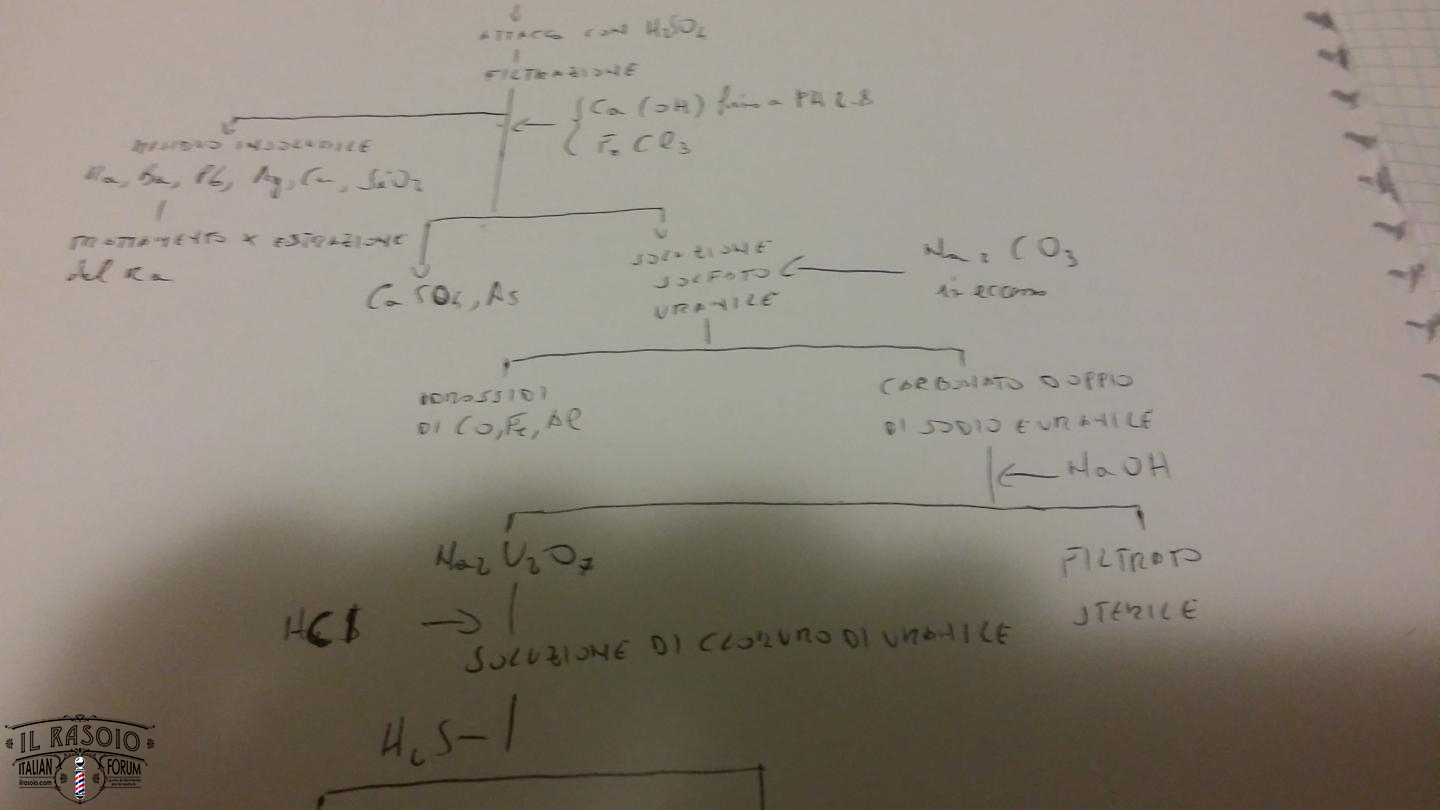 ATTACO CON H2SO4
FILTRAZIONE
Ca (OH) fino a PH 2.8
Fe Cl3
RESIDUO INSOLUBILE
Ra, Ba, Pb, Ag, Ca, SiO2
TRATTAMENTO X ESTRAZIONE
del Ra
CaSO4, As
SOLUZIONE
SOLFATO
URANILE
Na2 CO3
in eccesso
IDROSSIDI
DI CO, Fe, Al
CARBONATO DOPPIO
DI SODIO E URANILE
NaOH
Na2 U2O7
FILTRATO
STERILE
HCl
SOLUZIONE DI CLORURO DI URANILE
H2S
IL RASOIO
ITALIAN FORUM
ilrasoio.com